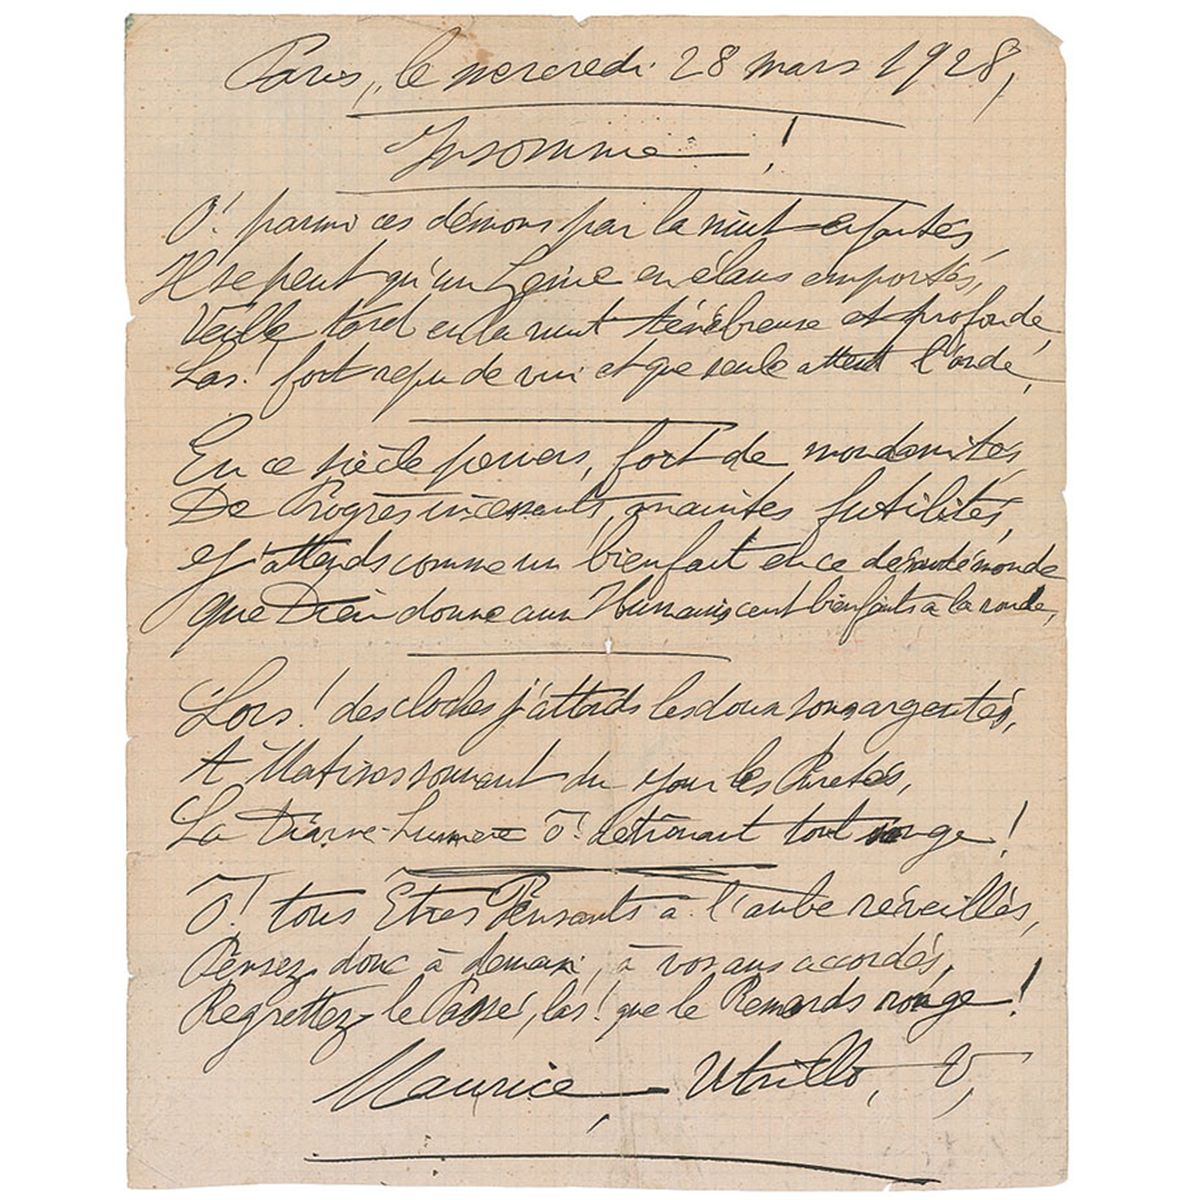 Paris, le mercredi 28 mars 1928,
Insomnie !
O! parmi ces démons par la nuit enfantés,
Il se peut qu'un Génie en élans emportés,
Veille tard en la nuit ténébreuse et profonde,
Las! fort repu de vin et que seule attend l'onde,
En ce siècle pervers, fort de mondanités,
De Progrès incessants, maintes futilités,
J'attends comme un bienfait en ce monde
que Dieu donne aux Humains cent bienfaits à la ronde,
Lors! des cloches j'attends les doux sons argentés,
A Matines sonnant du jour les Puretés,
La Diane-Lumière O! détrônant tout songe!
O! tous Etres Pensants à l'aube réveillés,
Pensez donc à demain, à vos ans accordés,
Regrettez le Passé, las! que le Remords ronge!
Maurice Utrillo, V,